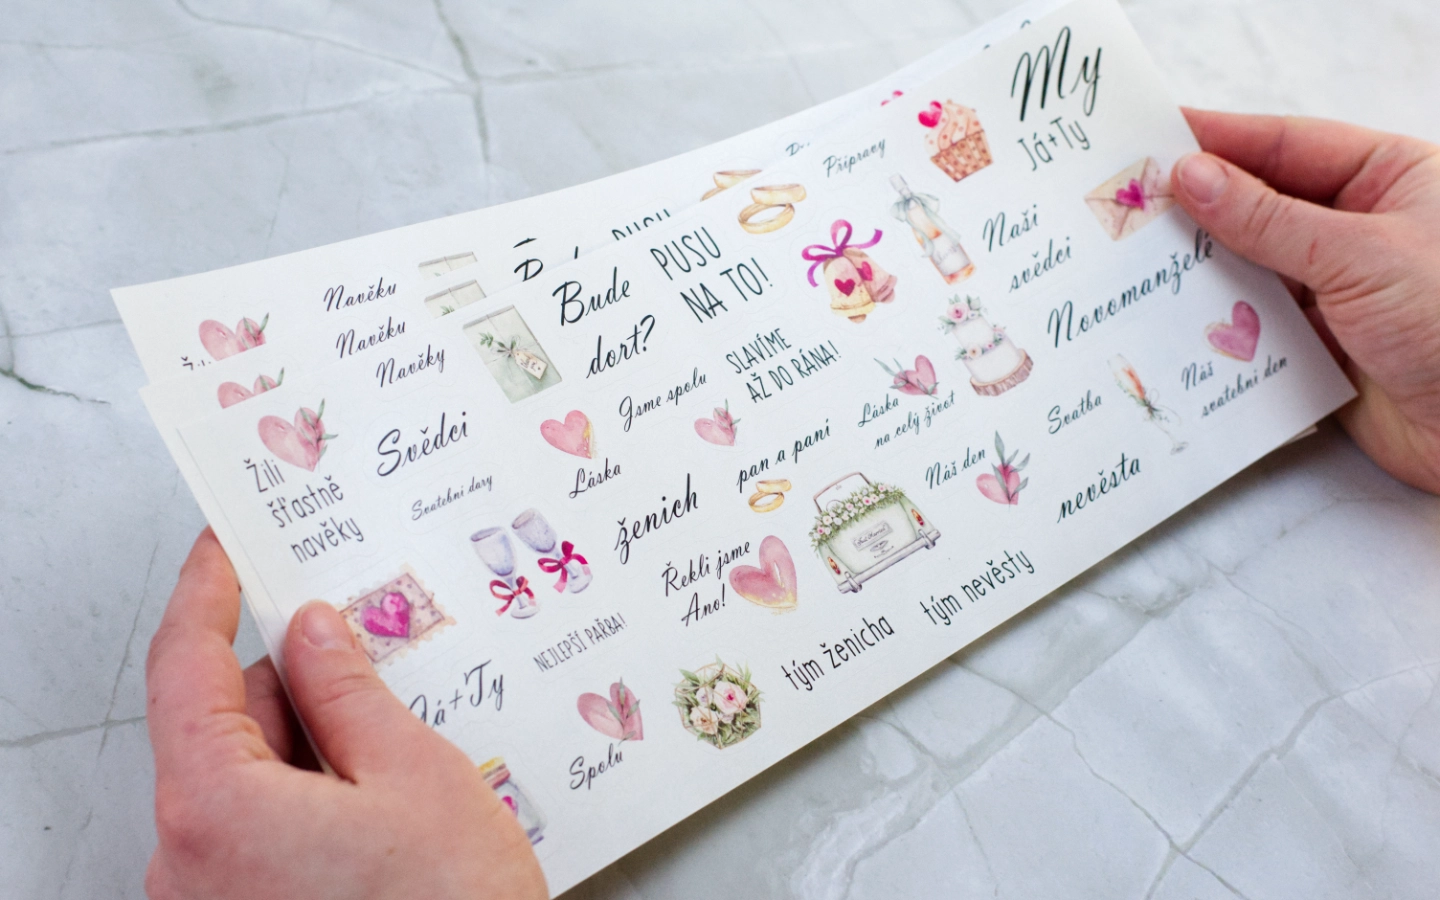 My
Já+Ty
Přípravy
Naši
svědci
Novomanželé
Náš
svatební den
Svatba
nevěsta
PUSU
NA TO!
Bude
dort?
SLAVÍME
AŽ DO RÁNA!
Láska
na celý život
Náš den
Jsme spolu
pan a paní
Láska
ženich
Řekli jsme
Ano!
tým nevěsty
tým ženicha
Navěku
Navěku
Navěky
Svědci
Svatební dary
Žili
šťastně
navěky
NEJLEPŠÍ PAŘBA!
Já+Ty
Spolu